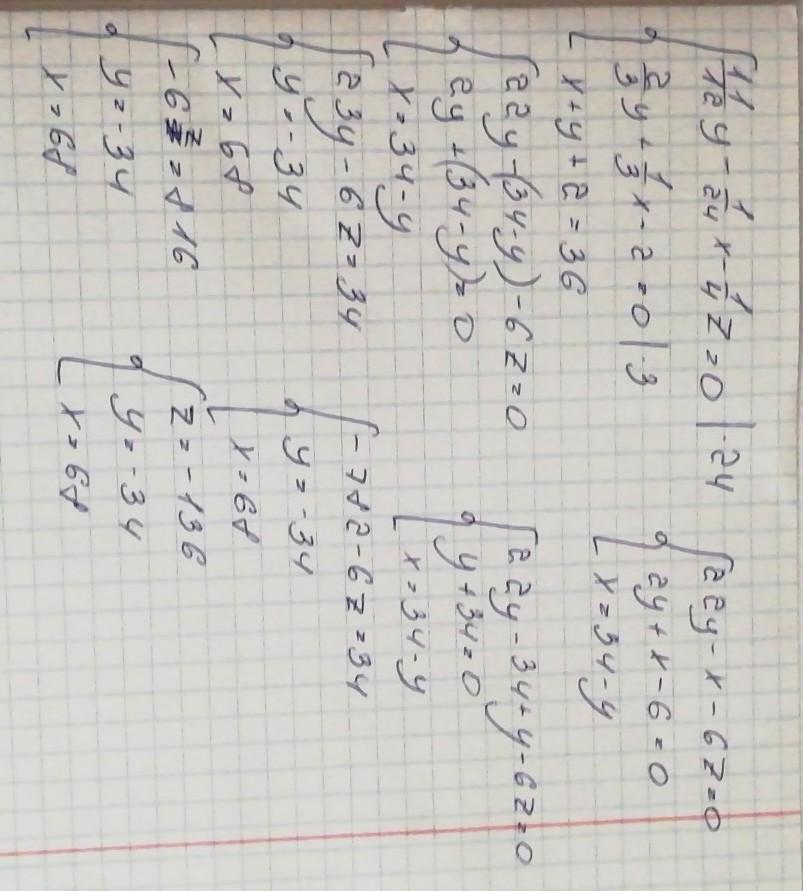 11/12 y - 1/24 x - 1/4 z = 0 | ·24
2/3 y + 1/3 x - 2 = 0 | ·3
x + y + 2 = 36
22y - x - 6z = 0
2y + x - 6 = 0
x = 34 - y
22y - (34 - y) - 6z = 0
2y + (34 - y) = 0
x = 34 - y
22y - 34 + y - 6z = 0
y + 34 = 0
x = 34 - y
23y - 6z = 34
y = -34
x = 68
-782 - 6z = 34
y = -34
x = 68
-6z = 816
y = -34
x = 68
z = -136
y = -34
x = 68